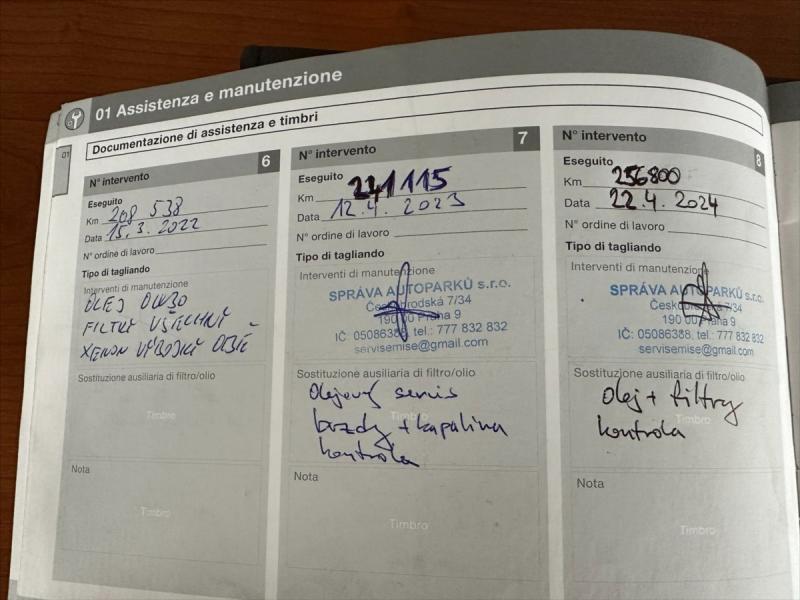 01 Assistenza e manutenzione
01
Documentazione di assistenza e timbri
N° intervento 6
Eseguito
Km 208 538
Data 15.3. 2022
N° ordine di lavoro
Tipo di tagliando
Interventi di manutenzione
OLEJ 0W30
FILTRY VŠECHNY
XENON VÝBOJKY OBĚ
Sostituzione ausiliaria di filtro/olio
Timbro
Nota
Timbro
N° intervento 7
Eseguito
Km 241115
Data 12.4. 2023
N° ordine di lavoro
Tipo di tagliando
Interventi di manutenzione
SPRÁVA AUTOPARKŮ s.r.o.
Českobrodská 7/34
190 00 Praha 9
IČ: 05086388, tel.: 777 832 832
servisemise@gmail.com
Sostituzione ausiliaria di filtro/olio
Olejový servis
Timbro
brzdy + kapalina
kontrola
Nota
Timbro
N° intervento 8
Eseguito
Km 256800
Data 22.4. 2024
N° ordine di lavoro
Tipo di tagliando
Interventi di manutenzione
SPRÁVA AUTOPARKŮ s.r.o.
Českobrodská 7/34
190 00 Praha 9
IČ: 05086388, tel.: 777 832 832
servisemise@gmail.com
Sostituzione ausiliaria di filtro/olio
olej + filtry
Timbro
kontrola
Nota
Timbro